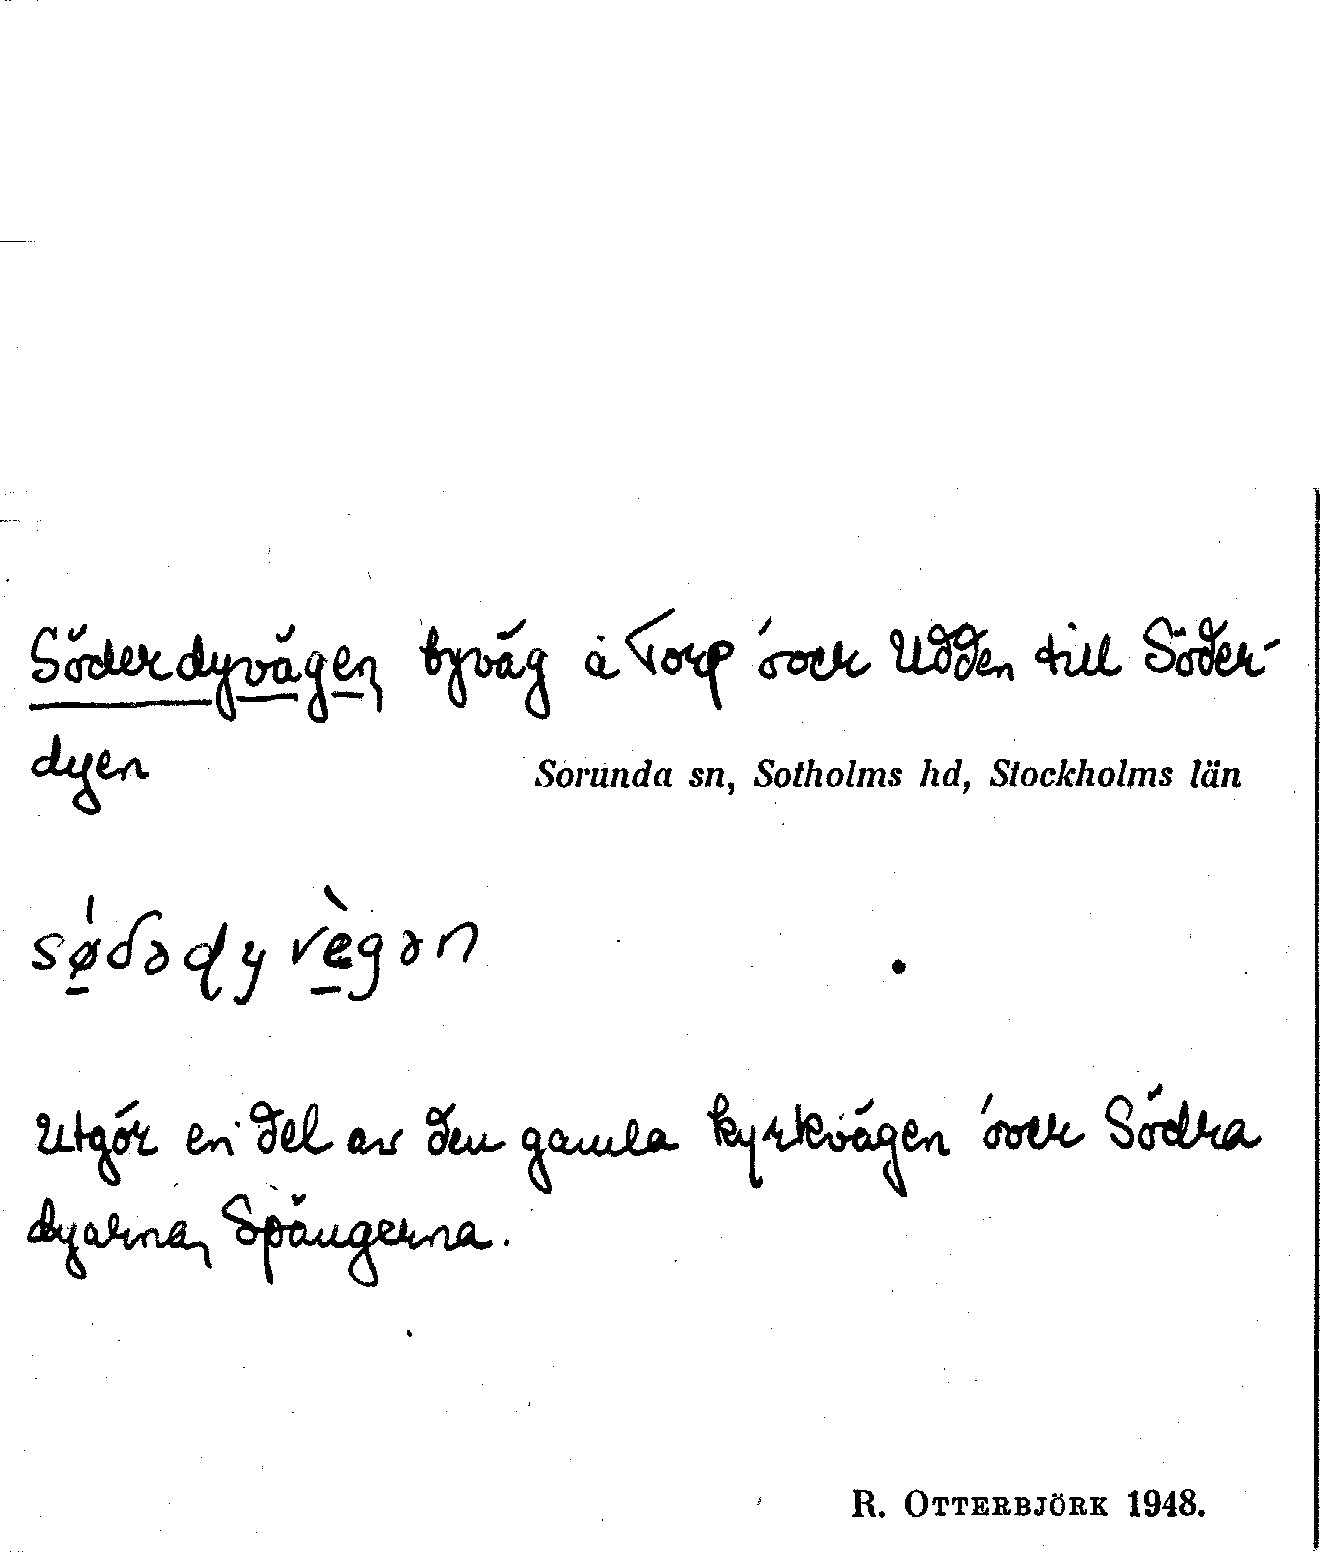 Söderdyvägen, byväg å Torp över Udden till Söder-
dyen
Sorunda sn, Sotholms hd, Stockholms län
sǿdədyvègən
Utgör en del av den gamla kyrkvägen över Södra
dyarna, Spängerna.
R. OTTERBJÖRK 1948.